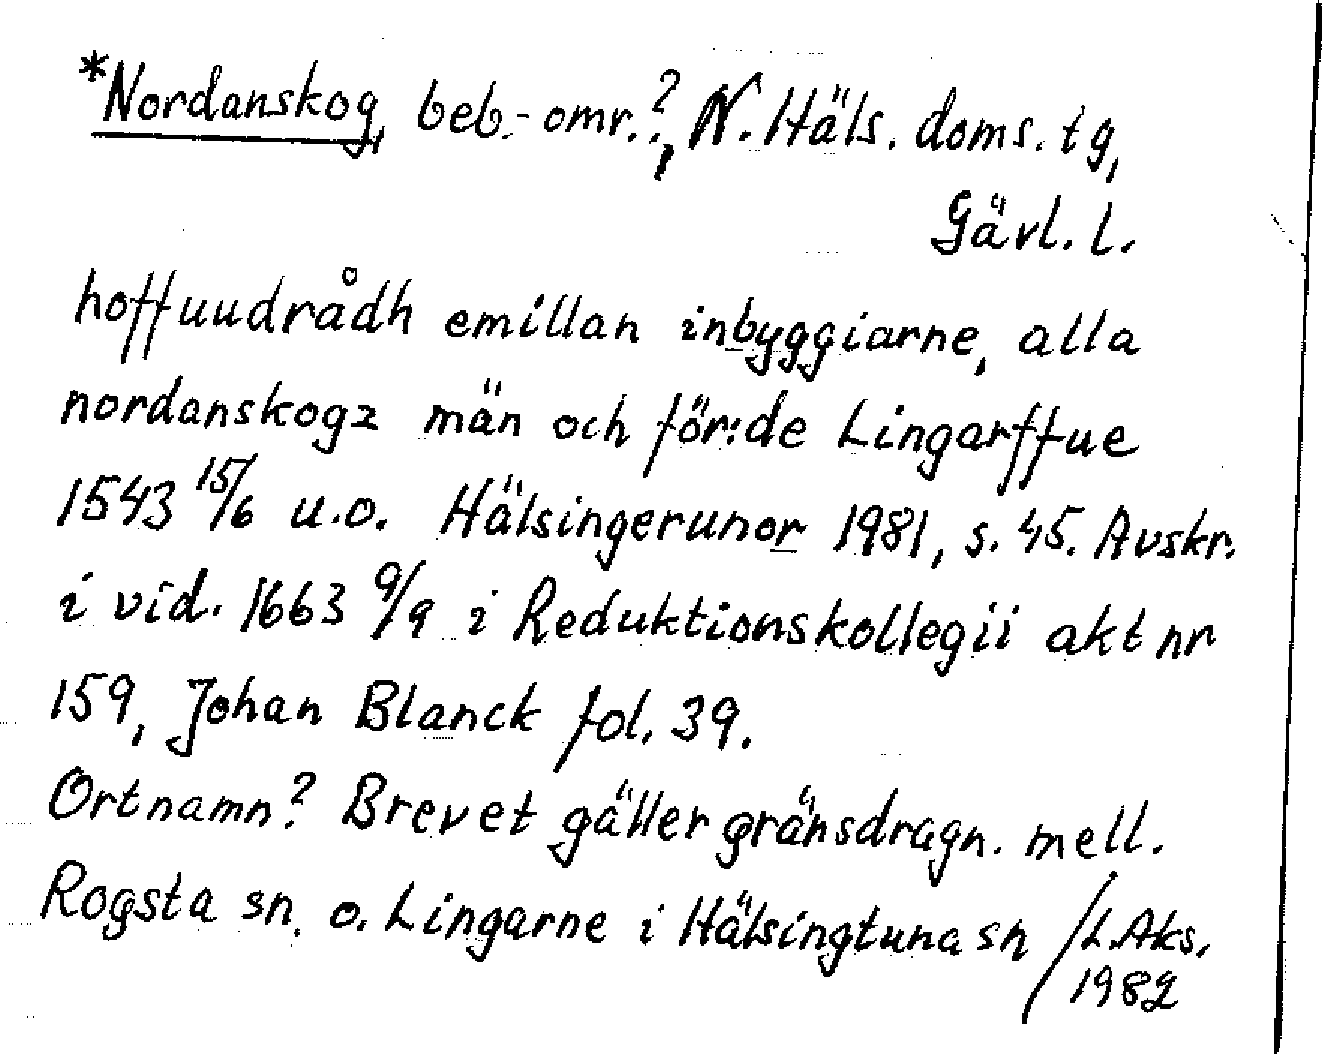 *Nordanskog, beb.-omr.?, N. Häls. doms. tg,
Gävl. l.
hoffuudrådh emillan inbyggiarne, alla
nordanskogz män och för:de Lingarffue
1543 15/6 u.o. Hälsingerunor 1981, s. 45. Avskr.
i vid. 1663 9/9 i Reduktionskollegii akt nr
159, Johan Blanck fol. 39.
Ortnamn? Brevet gäller gränsdragn. mell.
Rogsta sn. o. Lingarne i Hälsingtuna sn /L.Aks.
1982